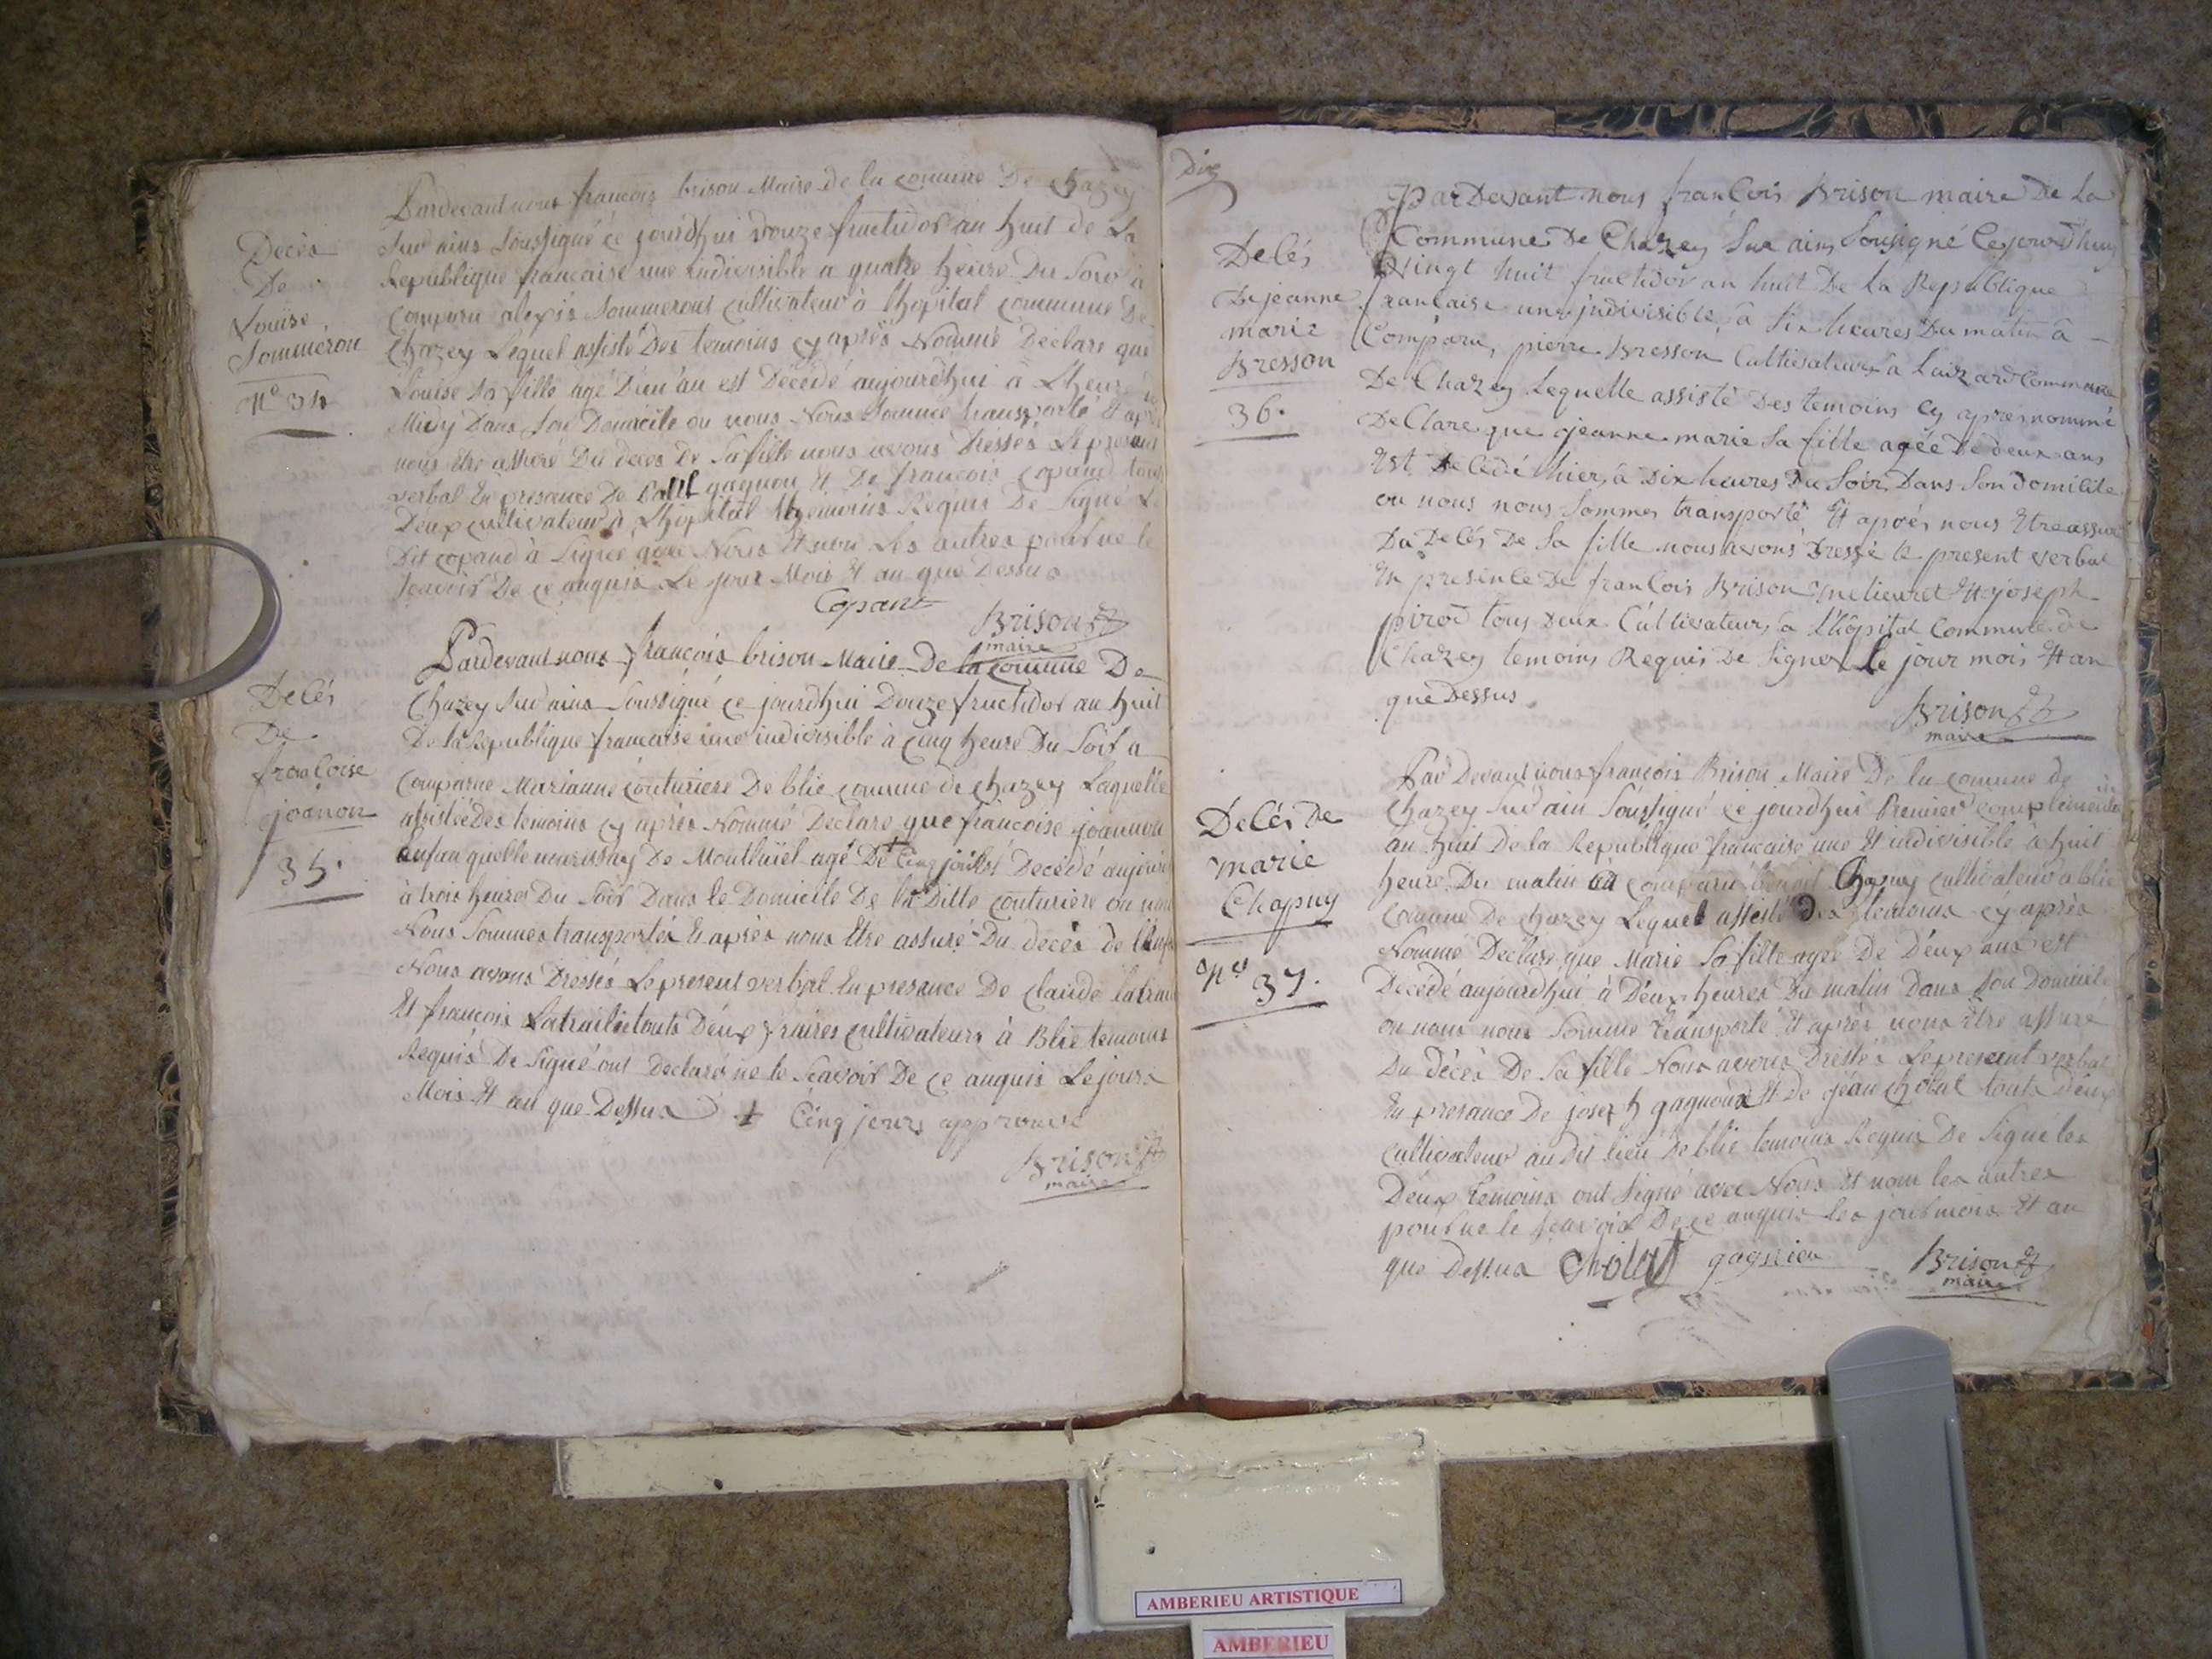 Pardevant nous françois brison Maire de la comune De Chazey
Sur ains soussigné ce jourdhui douze fructidor an huit de La
Republique francaise une indivisible a quatre heure Du Soir à
Comparu alexis Sommeront cultivateur à Lhopital commune De
Chazey Lequel assisté Des temoins cy après Nommé Déclare que
Louise sa fille agé D'un an est Décedé aujourdhui à Lheure
Midy Dans son Domicile ou nous Nous somme transporté Et après
nous être assuré Du deces De Sa fille nous avons Dressés Le present
verbal En presance De paul gagnou Et De francois copand touts
Deux cultivateur à Lhopital temoins Requis De Signé Le
Dit copand à Signé avec Nous Et non les autres pour ne le
scavoir De ce anquis Le jour Mois Et an que Dessus
Copant Brison
maire
Decès
De
Louise
Sommeron
N° 34
Pardevant nous francois brison Maire De la comune De
Chazey Sur ains Soussigné ce jourdhui Douze fructidor an huit
De la Republique francaise une indivisible à cinq heure Du Soir a
Comparue Marianne couturiere De blie comune de chazey Laquelle
assistée Des temoins cy après Nommé Declare que francoise joannon
enfan quelle nourissay De Montluïel agé De + cinq jour est Decedé
à trois heures Du Soir Dans le Domicile De la Ditte couturiere ou nous
Nous Sommes transportés Et après nous Etre assuré Du decès de
Nous avons Dressés Le present verbal En presance De claude
Et françois touts Deux fraires cultivateurs à Blie temoins
Requis De Signé ont Declaré ne le Scavoir De ce anquis Le jours
Mois Et an que Dessus + Cinq jours approuvé
Brison
maire
Decés
De
francoise
joanon
35.
Dix
Par Devant nous francois Brison maire De La
Commune De Chazey Sur ains Sousigné Cejourdhuy
Vingt huit fructidor an huit De La Republique
francaise une jndivisible, à Six heures Du matin à
Comparu, pierre Bresson Cultivateur a commune
De Chazey Lequelle assisté Des temoins Cy après nommé
DeClare que jeanne marie Sa fille agée De deux ans
Est decedé hier, à Dix heures Du Soir Dans Son Domicile
ou nous nous Sommes transporté Et après nous Etre assuré
Du Decés De Sa fille nous avons Dressé le present verbal
En presence De francois Brison Et joseph
pirod tous Deux Cultivateurs a Lhôpital Commune de
Chazey temoins Requis De Signer Le jour mois Et an
que Dessus.
Brison
maire
Decés
De jeanne
marie
Bresson
36.
Par Devant nous francois Brison Maire De la comune de
Chazey Sur ain Soussigné ce jourdhui Premier complementaire
an huit De la Republique francaise une Et indivisible à huit
heure Du matin à comparu Chapuy cultivateur a blie
comune De chazey Lequel assisté Des temoins cy après
Nommé Déclare que Marie Sa fille agée De Deux ans est
Decedé aujourdhui à Deux heures Du matin Dans Son Domicile
ou nous nous Somme transporté Et après nous Etre assuré
Du décès De Sa fille Nous avons Dressés Le present verbal
En presance De joseph Et De jean Cholat touts Deux
cultivateur au Dit lieu De blie temoins Requis De Signé les
Deux temoins ont Signé avec Nous Et nom les autres
pour ne le Scavoir De ce anquis les jour mois Et an
que Dessus Cholat gagnieu Brison
maire
Decés De
marie
Chapuy
N° 37.
AMBERIEU ARTISTIQUE
AMBERIEU